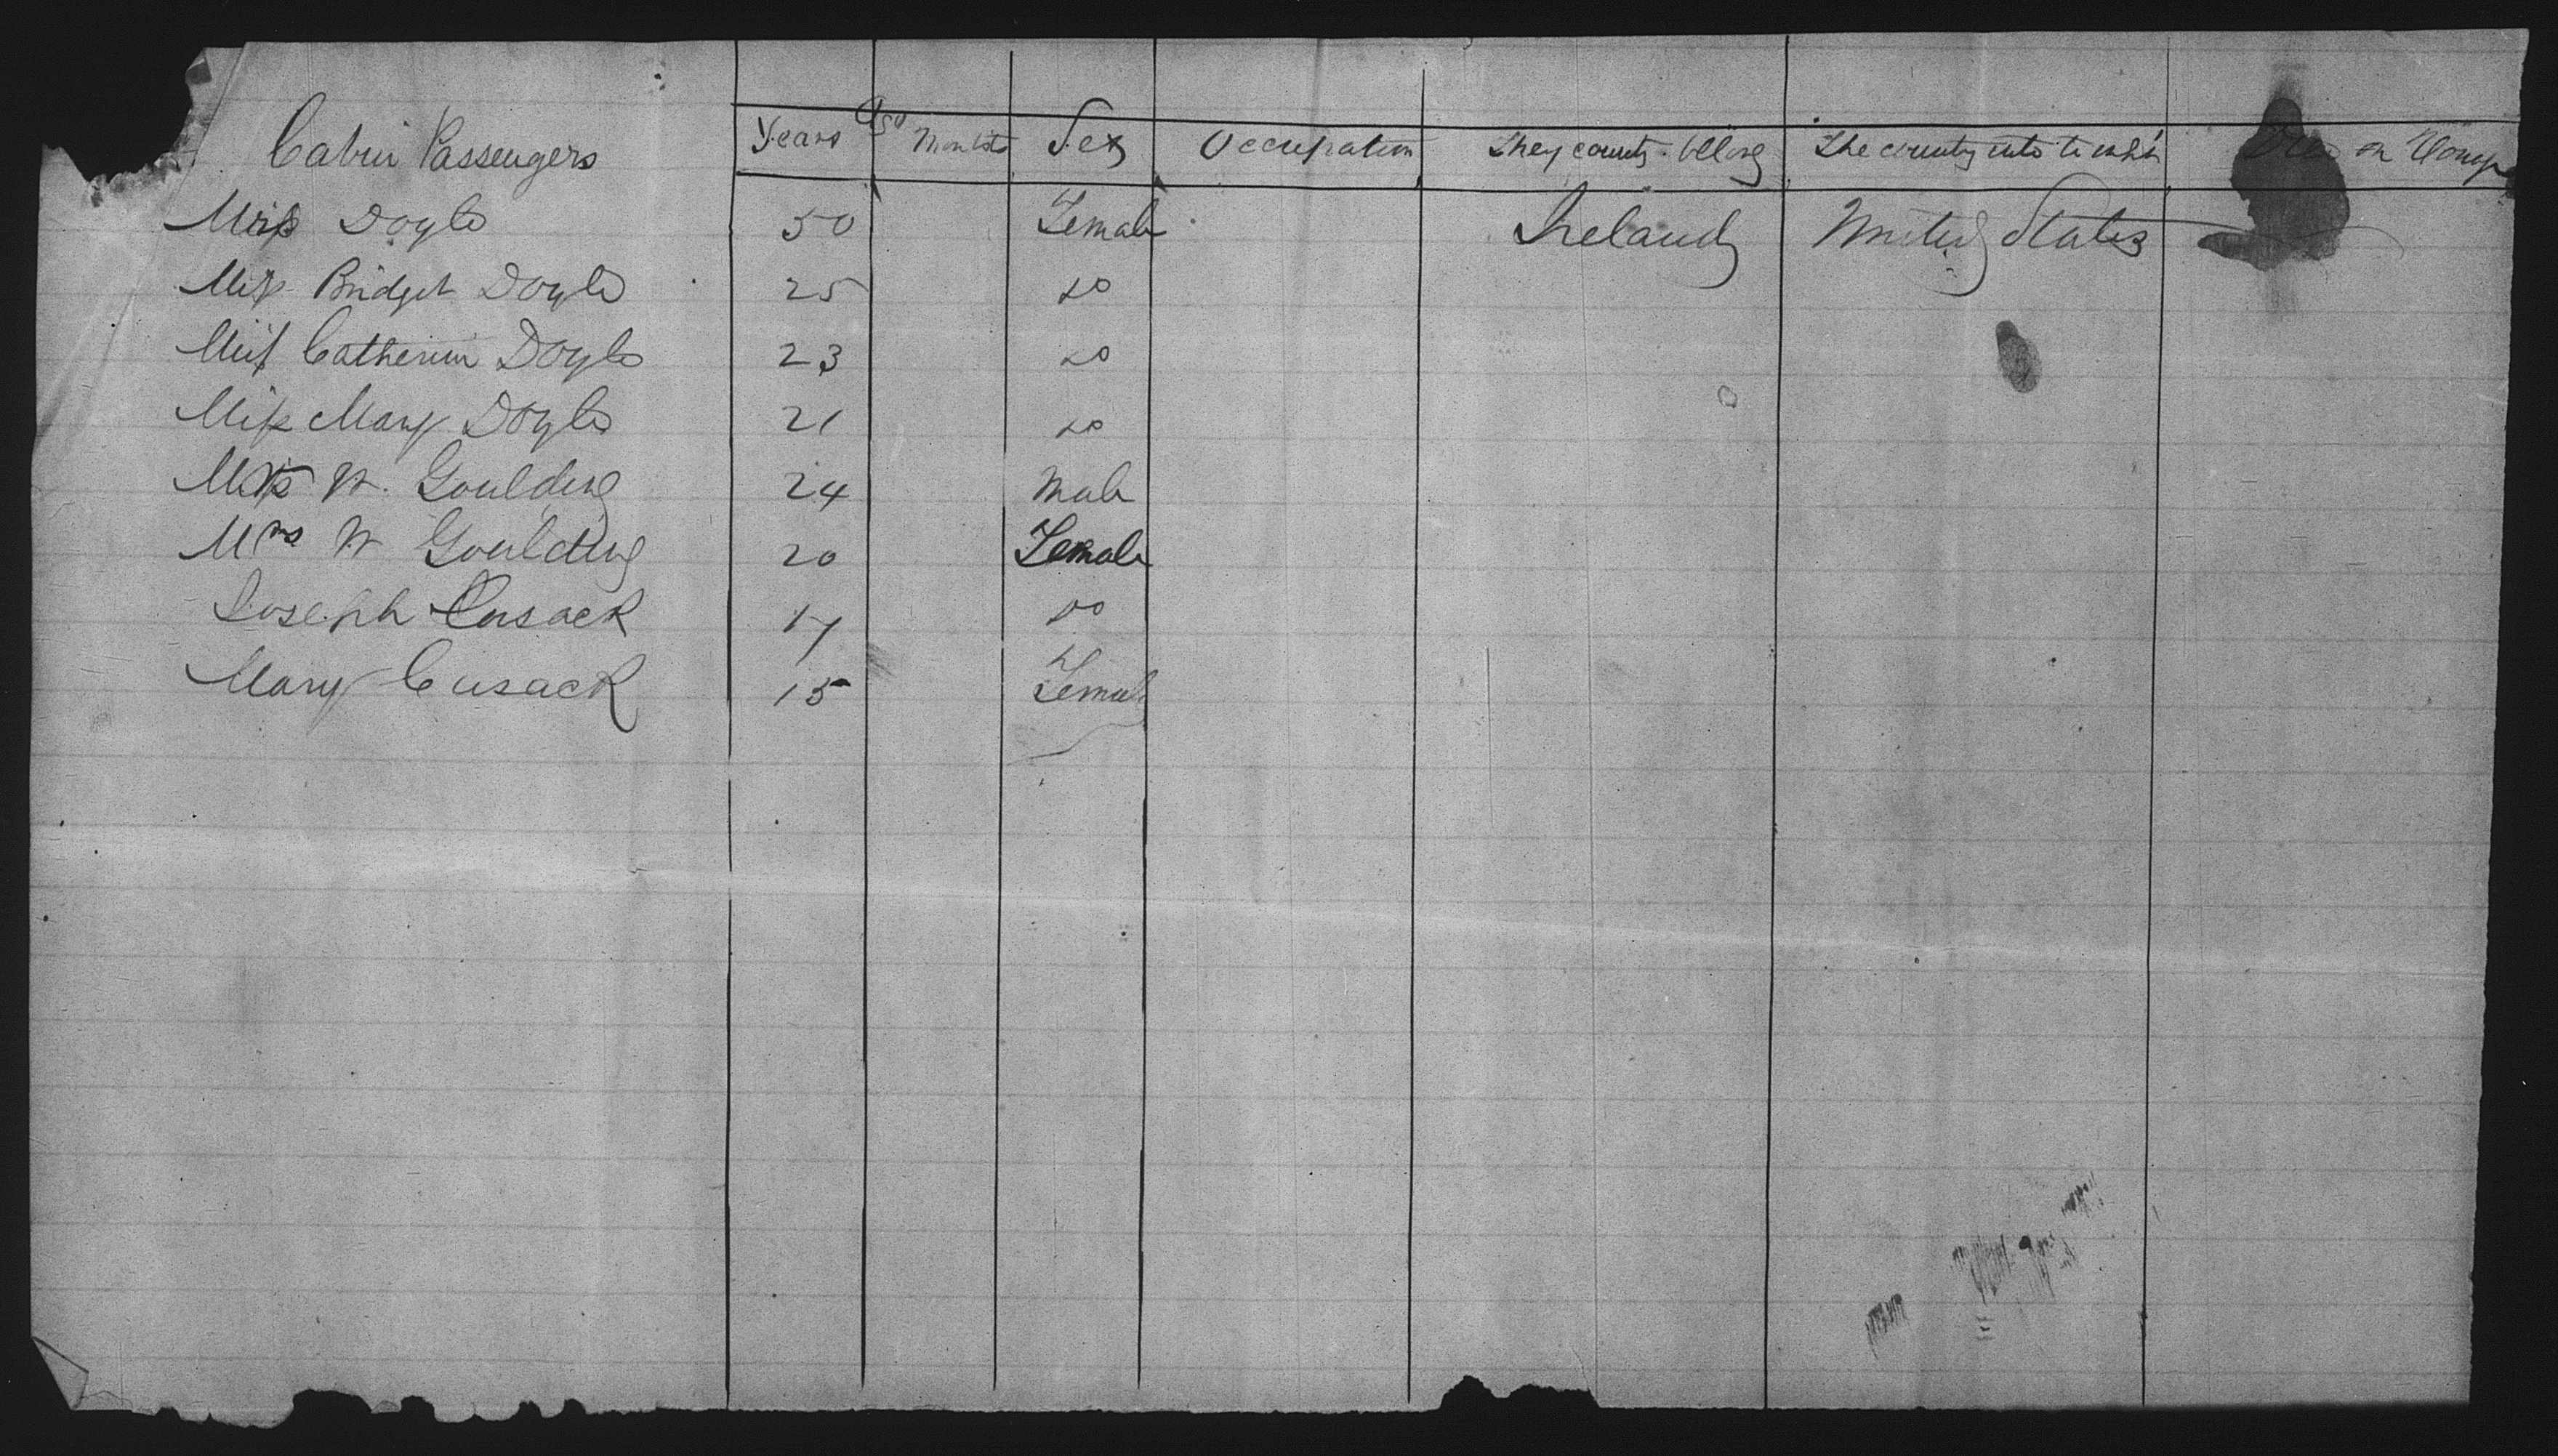 Age
Cabin Passengers Years Months Sex Occupation They county belong The county into to which Died on Voyage
Miss Doyle 50 Female Ireland United States
Miss Bridget Doyle 25 do
Miss Catherine Doyle 23 do
Miss Mary Doyle 21 do
W. Goulding 24 Male
Mrs W Goulding 20 Female
Joseph Cusack 17 do
Mary Cusack 15 Female